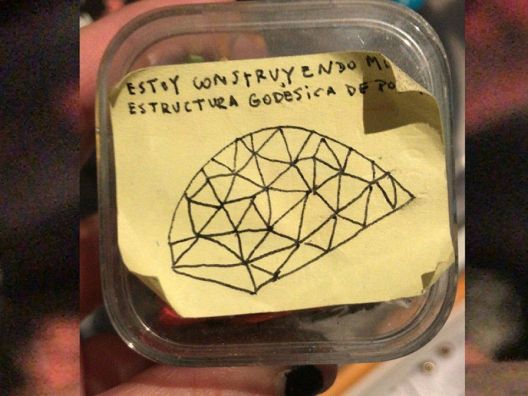 ESTOY CONSTRUYENDO MI
ESTRUCTURA GODESICA DE